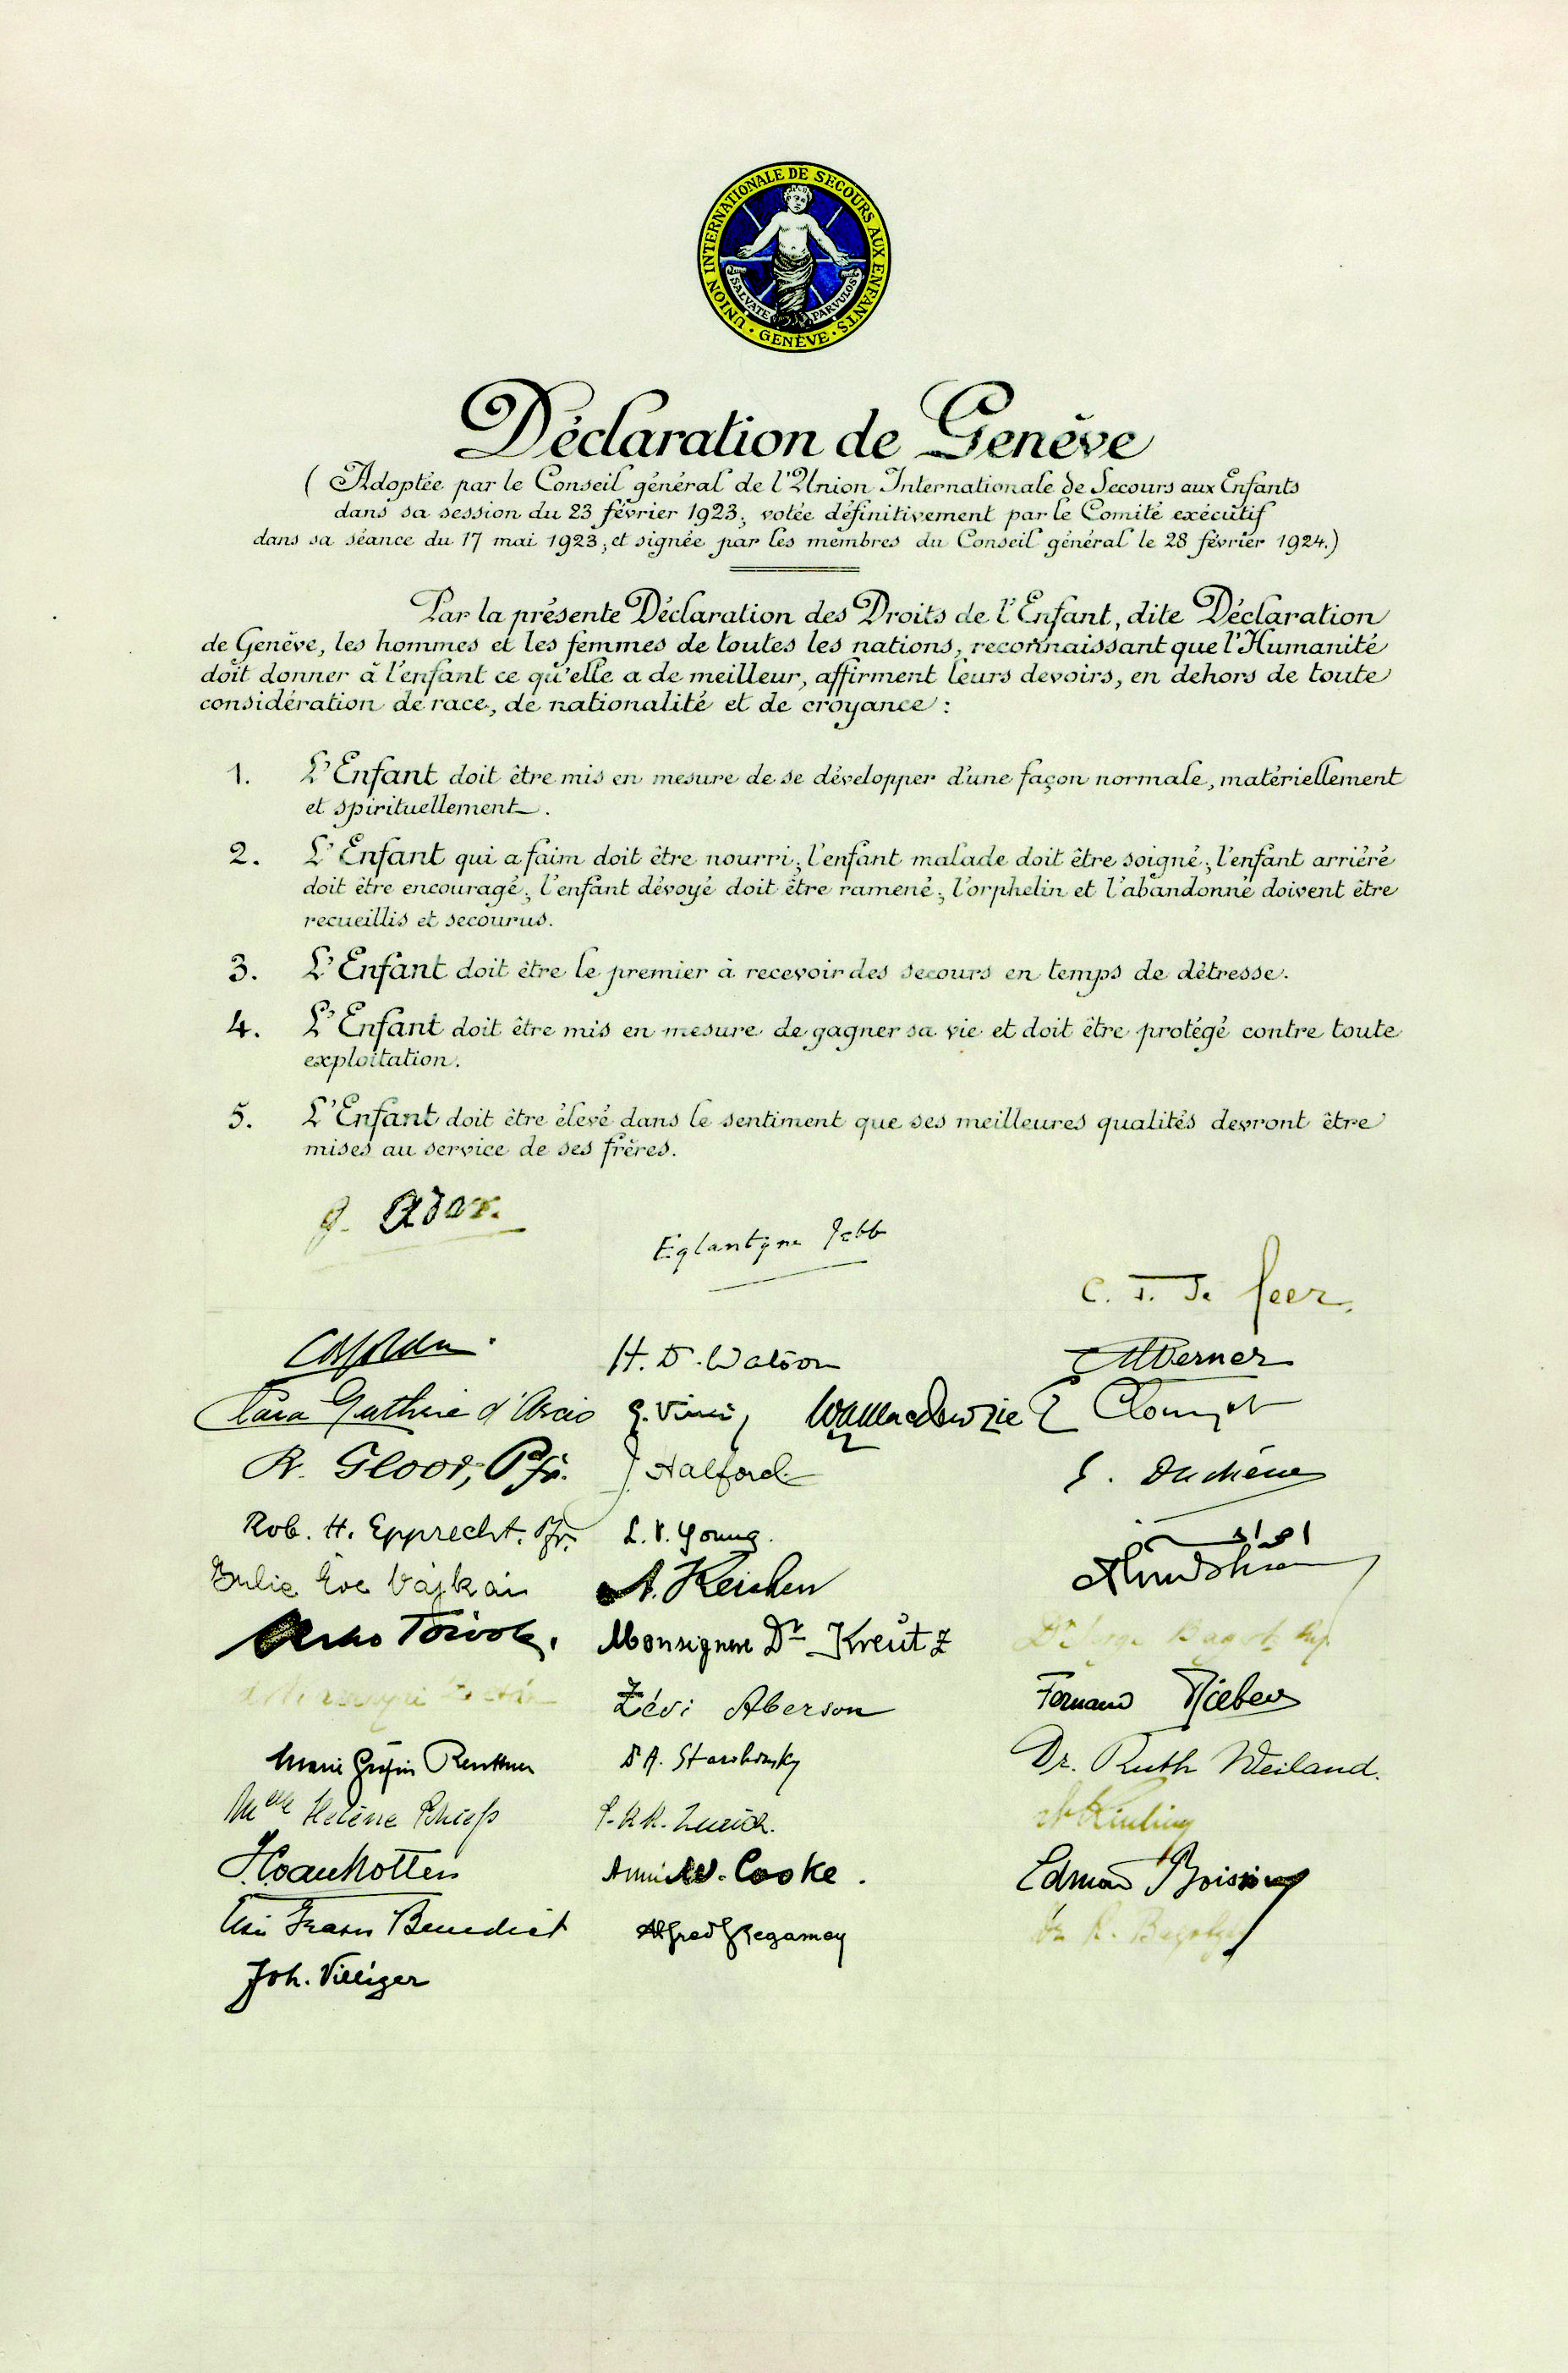 UNION INTERNATIONALE DE SECOURS AUX ENFANTS · GENÈVE ·
SALVATE PARVULOS
Déclaration de Genève
( Adoptée par le Conseil général de l'Union Internationale de Secours aux Enfants
dans sa session du 23 février 1923, votée définitivement par le Comité exécutif
dans sa séance du 17 mai 1923, et signée par les membres du Conseil général le 28 février 1924.)
Par la présente Déclaration des Droits de l'Enfant, dite Déclaration
de Genève, les hommes et les femmes de toutes les nations, reconnaissant que l'Humanité
doit donner à l'enfant ce qu'elle a de meilleur, affirment leurs devoirs, en dehors de toute
considération de race, de nationalité et de croyance :
1. L'Enfant doit être mis en mesure de se développer d'une façon normale, matériellement
et spirituellement.
2. L'Enfant qui a faim doit être nourri; l'enfant malade doit être soigné; l'enfant arriéré
doit être encouragé; l'enfant dévoyé doit être ramené; l'orphelin et l'abandonné doivent être
recueillis et secourus.
3. L'Enfant doit être le premier à recevoir des secours en temps de détresse.
4. L'Enfant doit être mis en mesure de gagner sa vie et doit être protégé contre toute
exploitation.
5. L'Enfant doit être élevé dans le sentiment que ses meilleures qualités devront être
mises au service de ses frères.
G. Ador.
Eglantyne Jebb
C. T. de Geer.
H. D. Watson
Werner
Clara Guthrie d'Arcis
G. Vinci
W. A. Mackenzie
E Clouzot
R. Gloor, Pfr.
J. Halford
Rob. H. Epprecht. Pfr.
L. V. Young.
Julie Eve Vajkai
Arno Torvoly.
Monsignore Dr Kreutz
Zévi Aberson
Fernand
Marie Gräfin
Dr. Ruth Weiland.
Melle Hélène
Cooke.
Edmond Boissier
Benedict
Alfred Regamey
Joh. Villiger